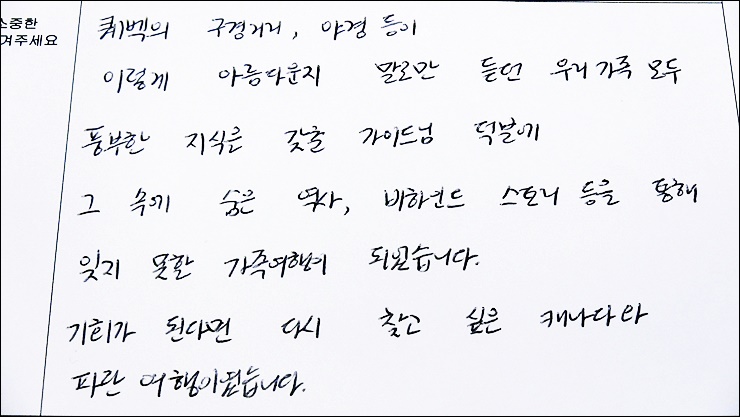 소중한
겨주세요
퀘벡의 구경거리, 야경 등이
이렇게 아름다운지 말로만 듣던 우리가족 모두
풍부한 지식은 갖춘 가이드님 덕분에
그 속에 숨은 역사, 비하인드 스토리 등을 통해
잊지 못할 가족여행이 되었습니다.
기회가 된다면 다시 찾고 싶은 캐나다와
파란 여행이었습니다.